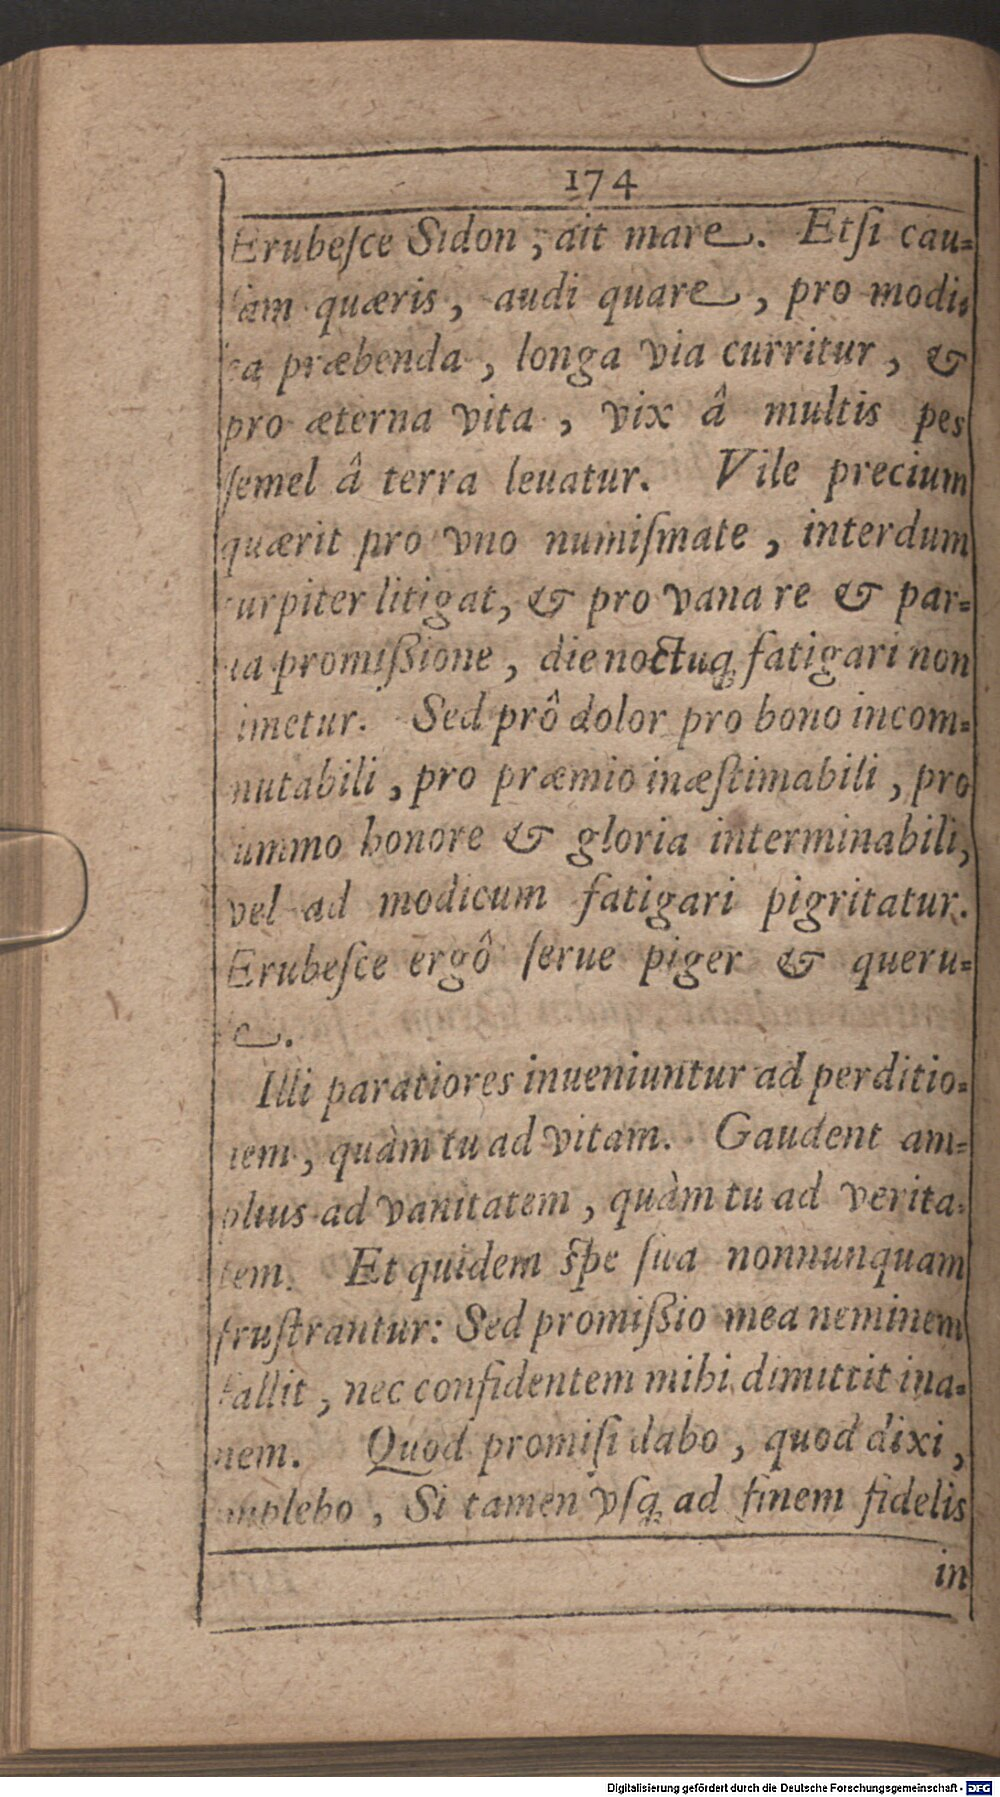 174
Erubeſce Sidon, ait mare. Etſi cau-
ſam quæris, audi quare, pro modi-
ca præbenda, longa via curritur, &
pro æterna vita, vix â multis pes
ſemel â terra leuatur. Vile precium
quærit pro vno numiſmate, interdum
turpiter litigat, & pro vana re & par-
ua promißione, die noctuq; fatigari non
timetur. Sed prô dolor pro bono incom-
mutabili, pro præmio inæſtimabili, pro
ſummo honore & gloria interminabili,
vel ad modicum fatigari pigritatur.
Erubeſce ergô ſerue piger & queru-
e.
Illi paratiores inueniuntur ad perditio-
nem, quàm tu ad vitam. Gaudent am-
plius ad vanitatem, quàm tu ad verita-
tem. Et quidem ſpe ſua nonnunquam
fruſtrantur: Sed promißio mea neminem
fallit, nec confidentem mihi dimittit ina-
nem. Quod promiſi dabo, quod dixi,
implebo, Si tamen vſq; ad finem fidelis
in
Digitalisierung gefördert durch die Deutsche Forschungsgemeinschaft - DFG